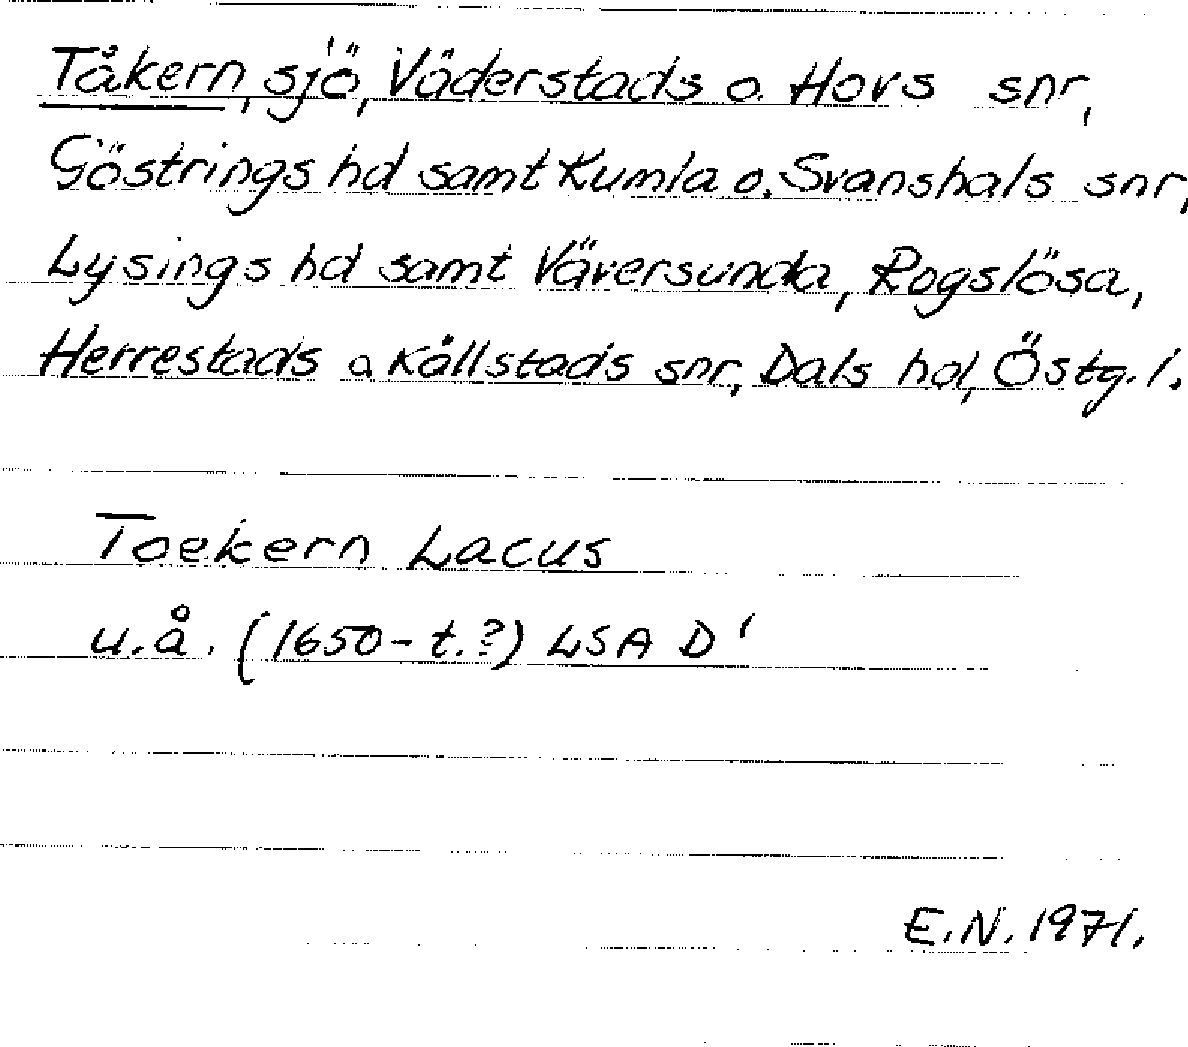 Tåkern, sjö, Väderstads o. Hovs snr,
Göstrings hd samt Kumla o. Svanshals snr,
Lysings hd samt Väversunda, Rogslösa,
Herrestads o Källstads snr, Dals hd, Östg. l.
Toekern Lacus
u.å. (1650-t.?) LSA D'
E.N. 1971.